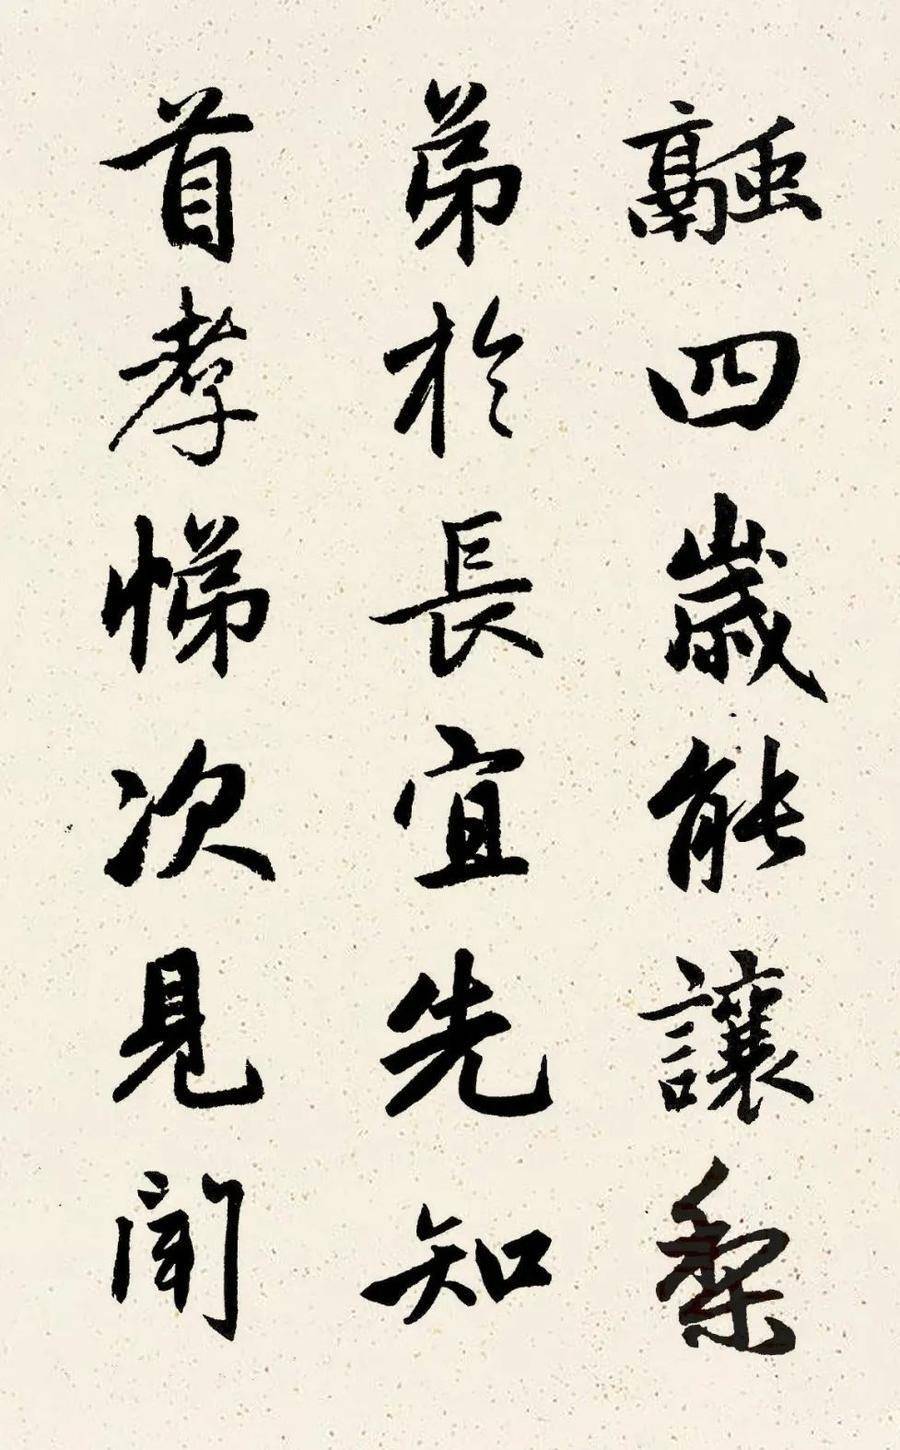 融四歲能讓梨
弟於長宜先知
首孝悌次見聞